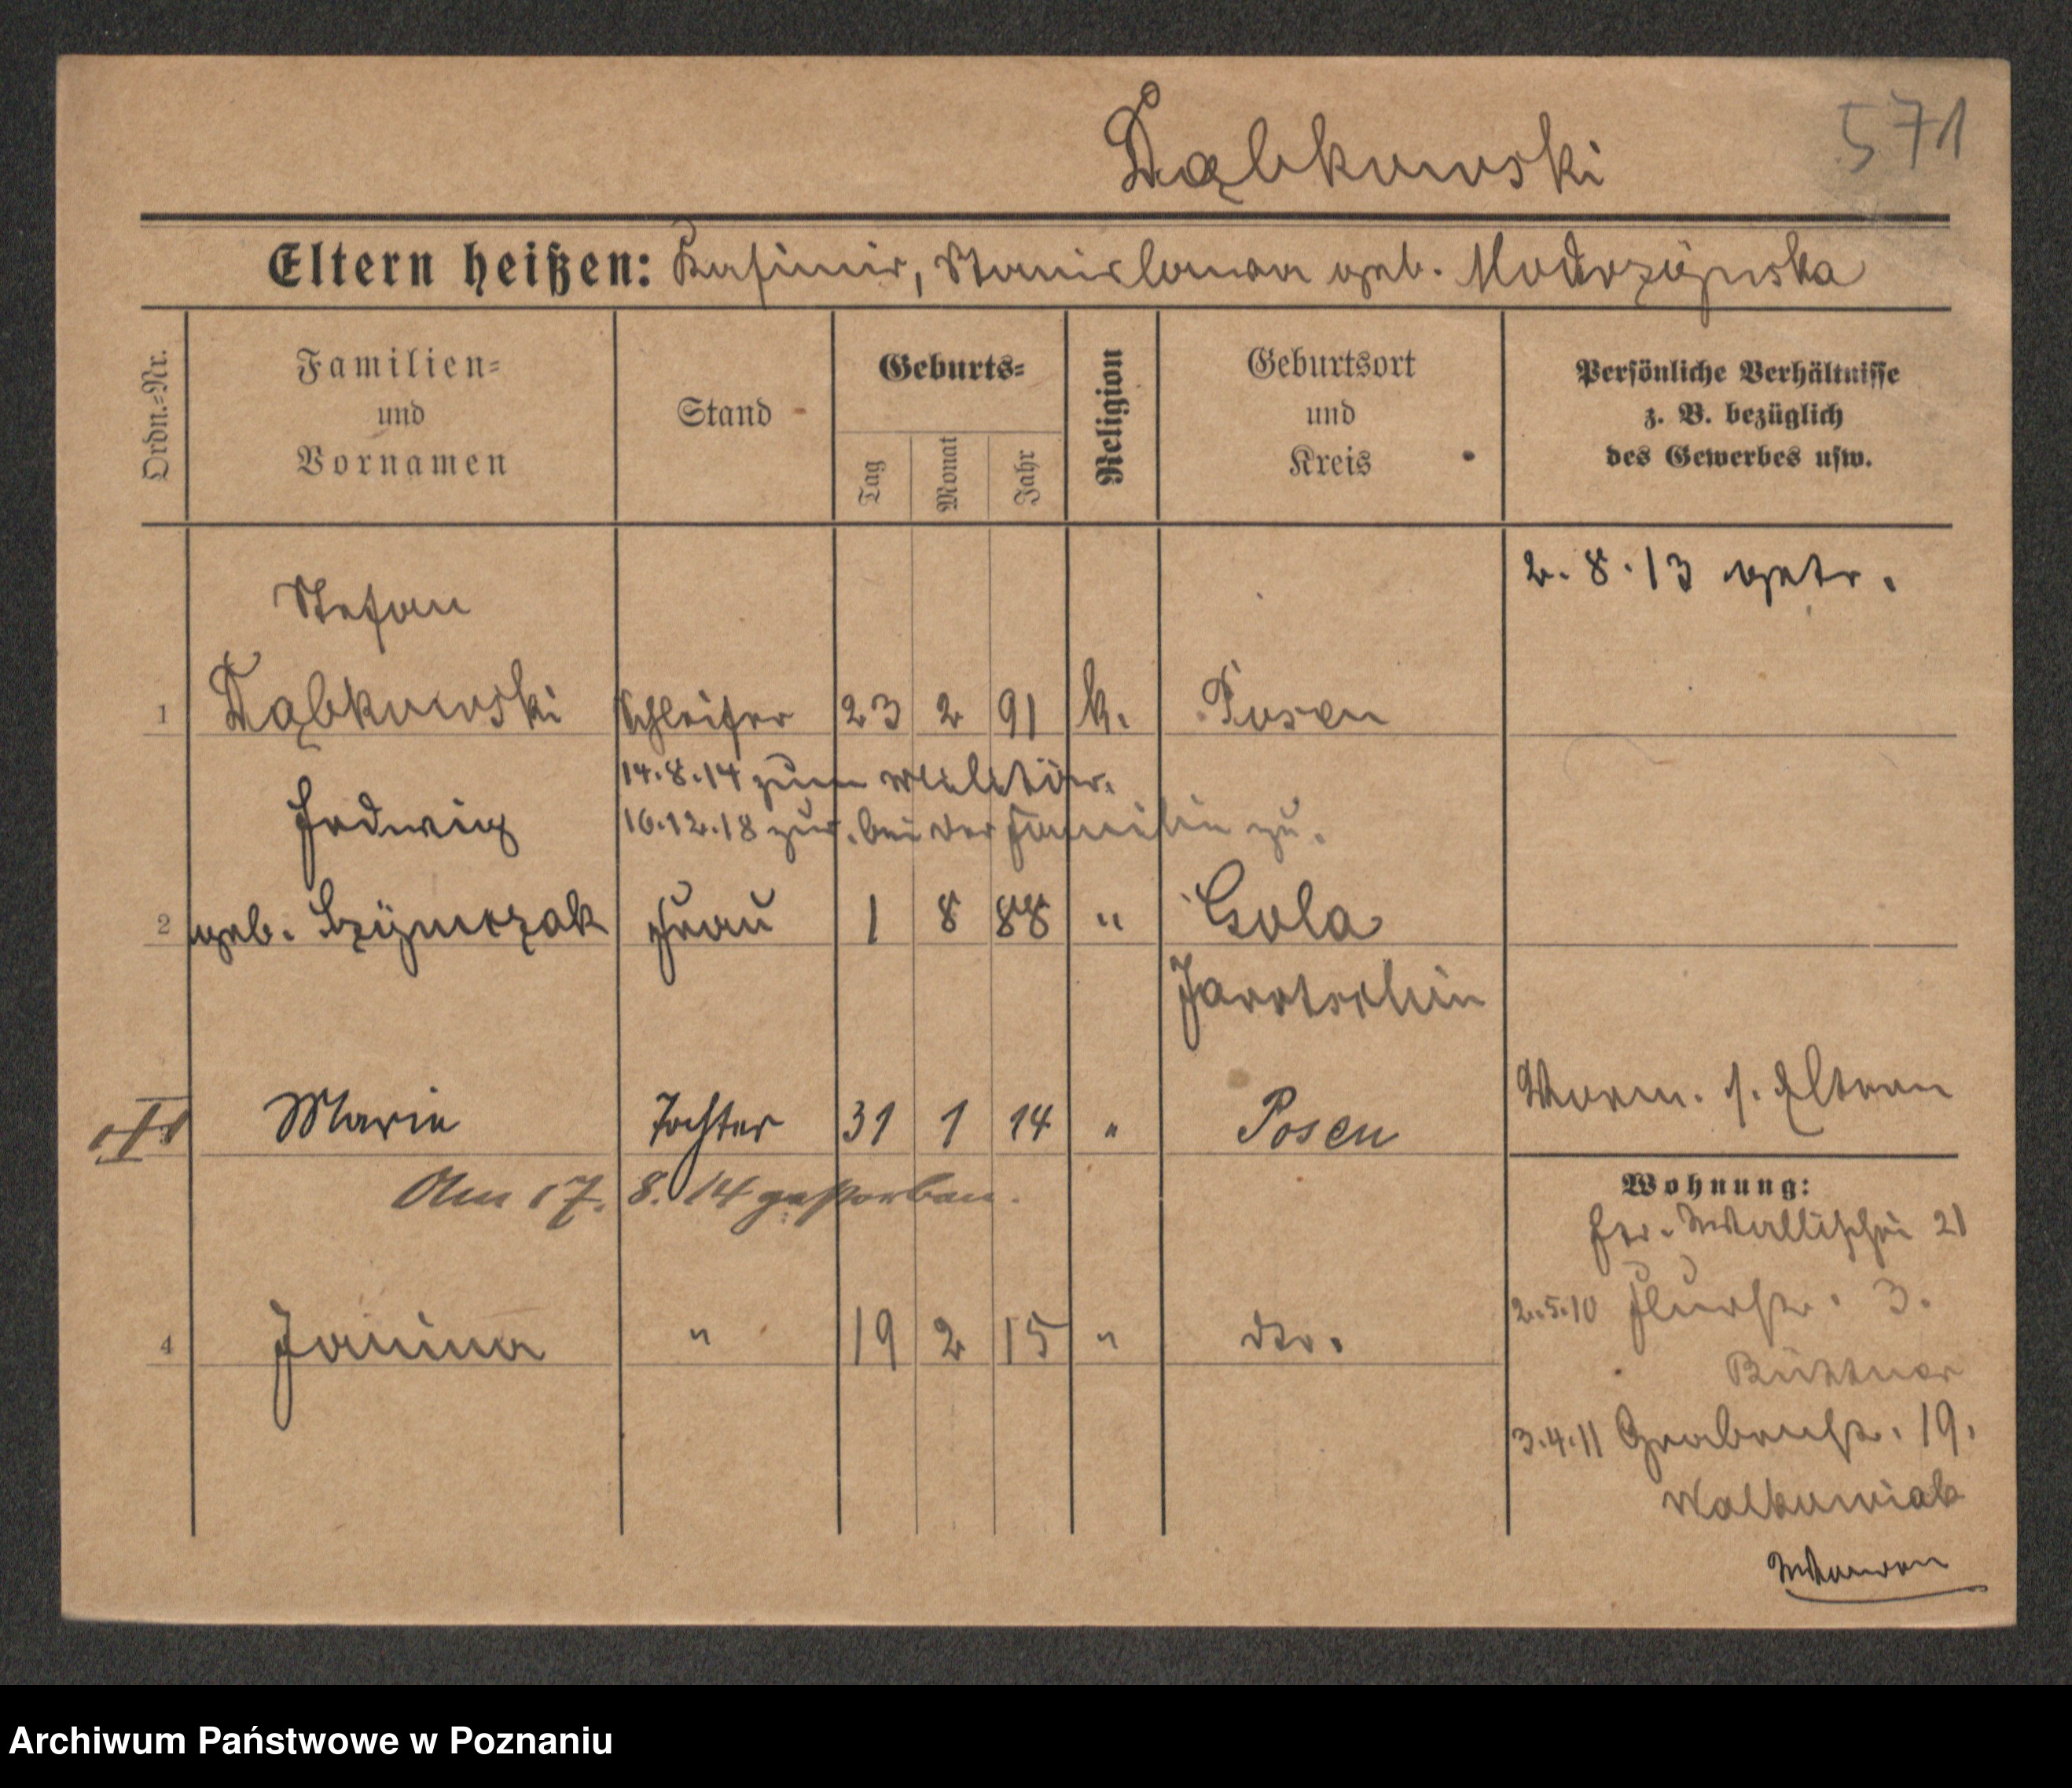 Dąbkowski
571
Eltern heißen: Kasimir, Stanislawa geb. Modrzyńska
Ordn.-Nr.
Familien-
und
Vornamen
Stand
Geburts-
Tag
Monat
Jahr
Religion
Geburtsort
und
Kreis
Persönliche Verhältnisse
z. B. bezüglich
des Gewerbes usw.
2. 8. 13 getr.
Stefan
1 Dąbkowski Schleifer 23 2 91 k. Posen
14.8.14 zum Militär.
Hedwig
16.12.18 zur. bei der Familie zu.
2 geb. Szymczak Frau 1 8 88 " Gola
Jarotschin
Marie Tochter 31 1 14 " Posen
Vorm. s. Eltern
Am 17. 8. 14 gestorben.
Wohnung:
fr. Wallischei 21
2.5.10 Flurstr. 3.
Büttner
4 Janina " 19 2 15 " dto.
3.4.11 Grabenstr. 19.
Walkowiak
Wenden
Archiwum Państwowe w Poznaniu